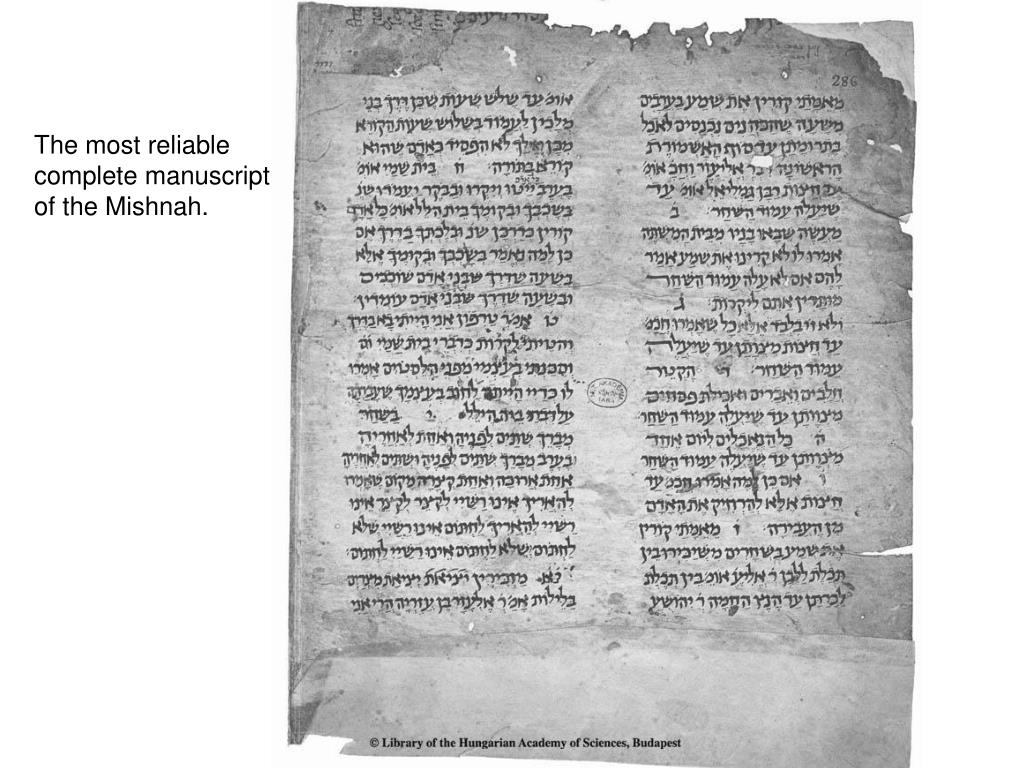 The most reliable
complete manuscript
of the Mishnah.
286
מאמתי קורין את שמע בערבים
משעה שהכהנים נכנסים לאכל
בתרומתן עד סוף האשמורת
הראשונה אליעזר וחכ אומ
עד חצות רבן גמליאל אומ עד
שיעלה עמוד השחר ב
מעשה שבאו בניו מבית המשתה
אמרו לו לא קרינו את שמע אמר
להם אם לא עלה עמוד השחר
מותרין אתם ליקרות ג
ולא זו בלבד אלא כל שאמרו חכמ
עד חצות מצותן עד שיעלה
עמוד השחר ד הקטר
חלבים ואברים ואכילת פסחים
מיצותן עד שיעלה עמוד השחר
ה כל הנאכלים ליום אחד
מיצוותן עד שיעלה עמוד השחר
ו אם כן למה אמרו חכמ עד
חצות אלא להרחיק את האדם
מן העבירה ז מאמתי קורין
את שמע בשחרים משיכירו בין
תכלת ללבן ר אליעז אומ בין תכלת
לכרתן עד הנץ החמה ר יהושע
אומ עד שלש שעות שכן דרך בני
מלכין לעמוד בשלוש שעות הקורא
מכן ואילך לא הפסיד כאדם שהוא
קורא בתורה ח בית שמי אומ
בערב ייטו ויקרו ובבקר ויעמדו שנ
בשכבך ובקומך בית הלל אומ כל אדם
קורין כדרכן שנ ובלכתך בדרך אם
כן למה נאמר בשכבך ובקומך אלא
בשעה שדרך שבני אדם שוכבים
ובשעה שדרך שבני אדם עומדין
ט אמר טרפון אני הייתי בא בדרך
והטיתי לקרות כדברי בית שמי
וסכנתי בעצמי מפני הלסטים אמרו
לו כדיי הייתה לחוב בעצמך שעברתה
על דברי בית הילל י בשחר
מברך שתים לפניה ואחת לאחריה
בערב מברך שתים לפניה ושתים לאחריה
אחת ארוכה ואחת קצרה מקום שאמרו
להאריך אינו רשיי לקצר לקצר אינו
רשיי להאריך לחתום אינו רשיי שלא
לחתום שלא לחתום אינו רשיי לחתום
יא מזכירין יציאת מצרים
בלילות אמ ר אלעזר בן עזריה הרי אני
© Library of the Hungarian Academy of Sciences, Budapest